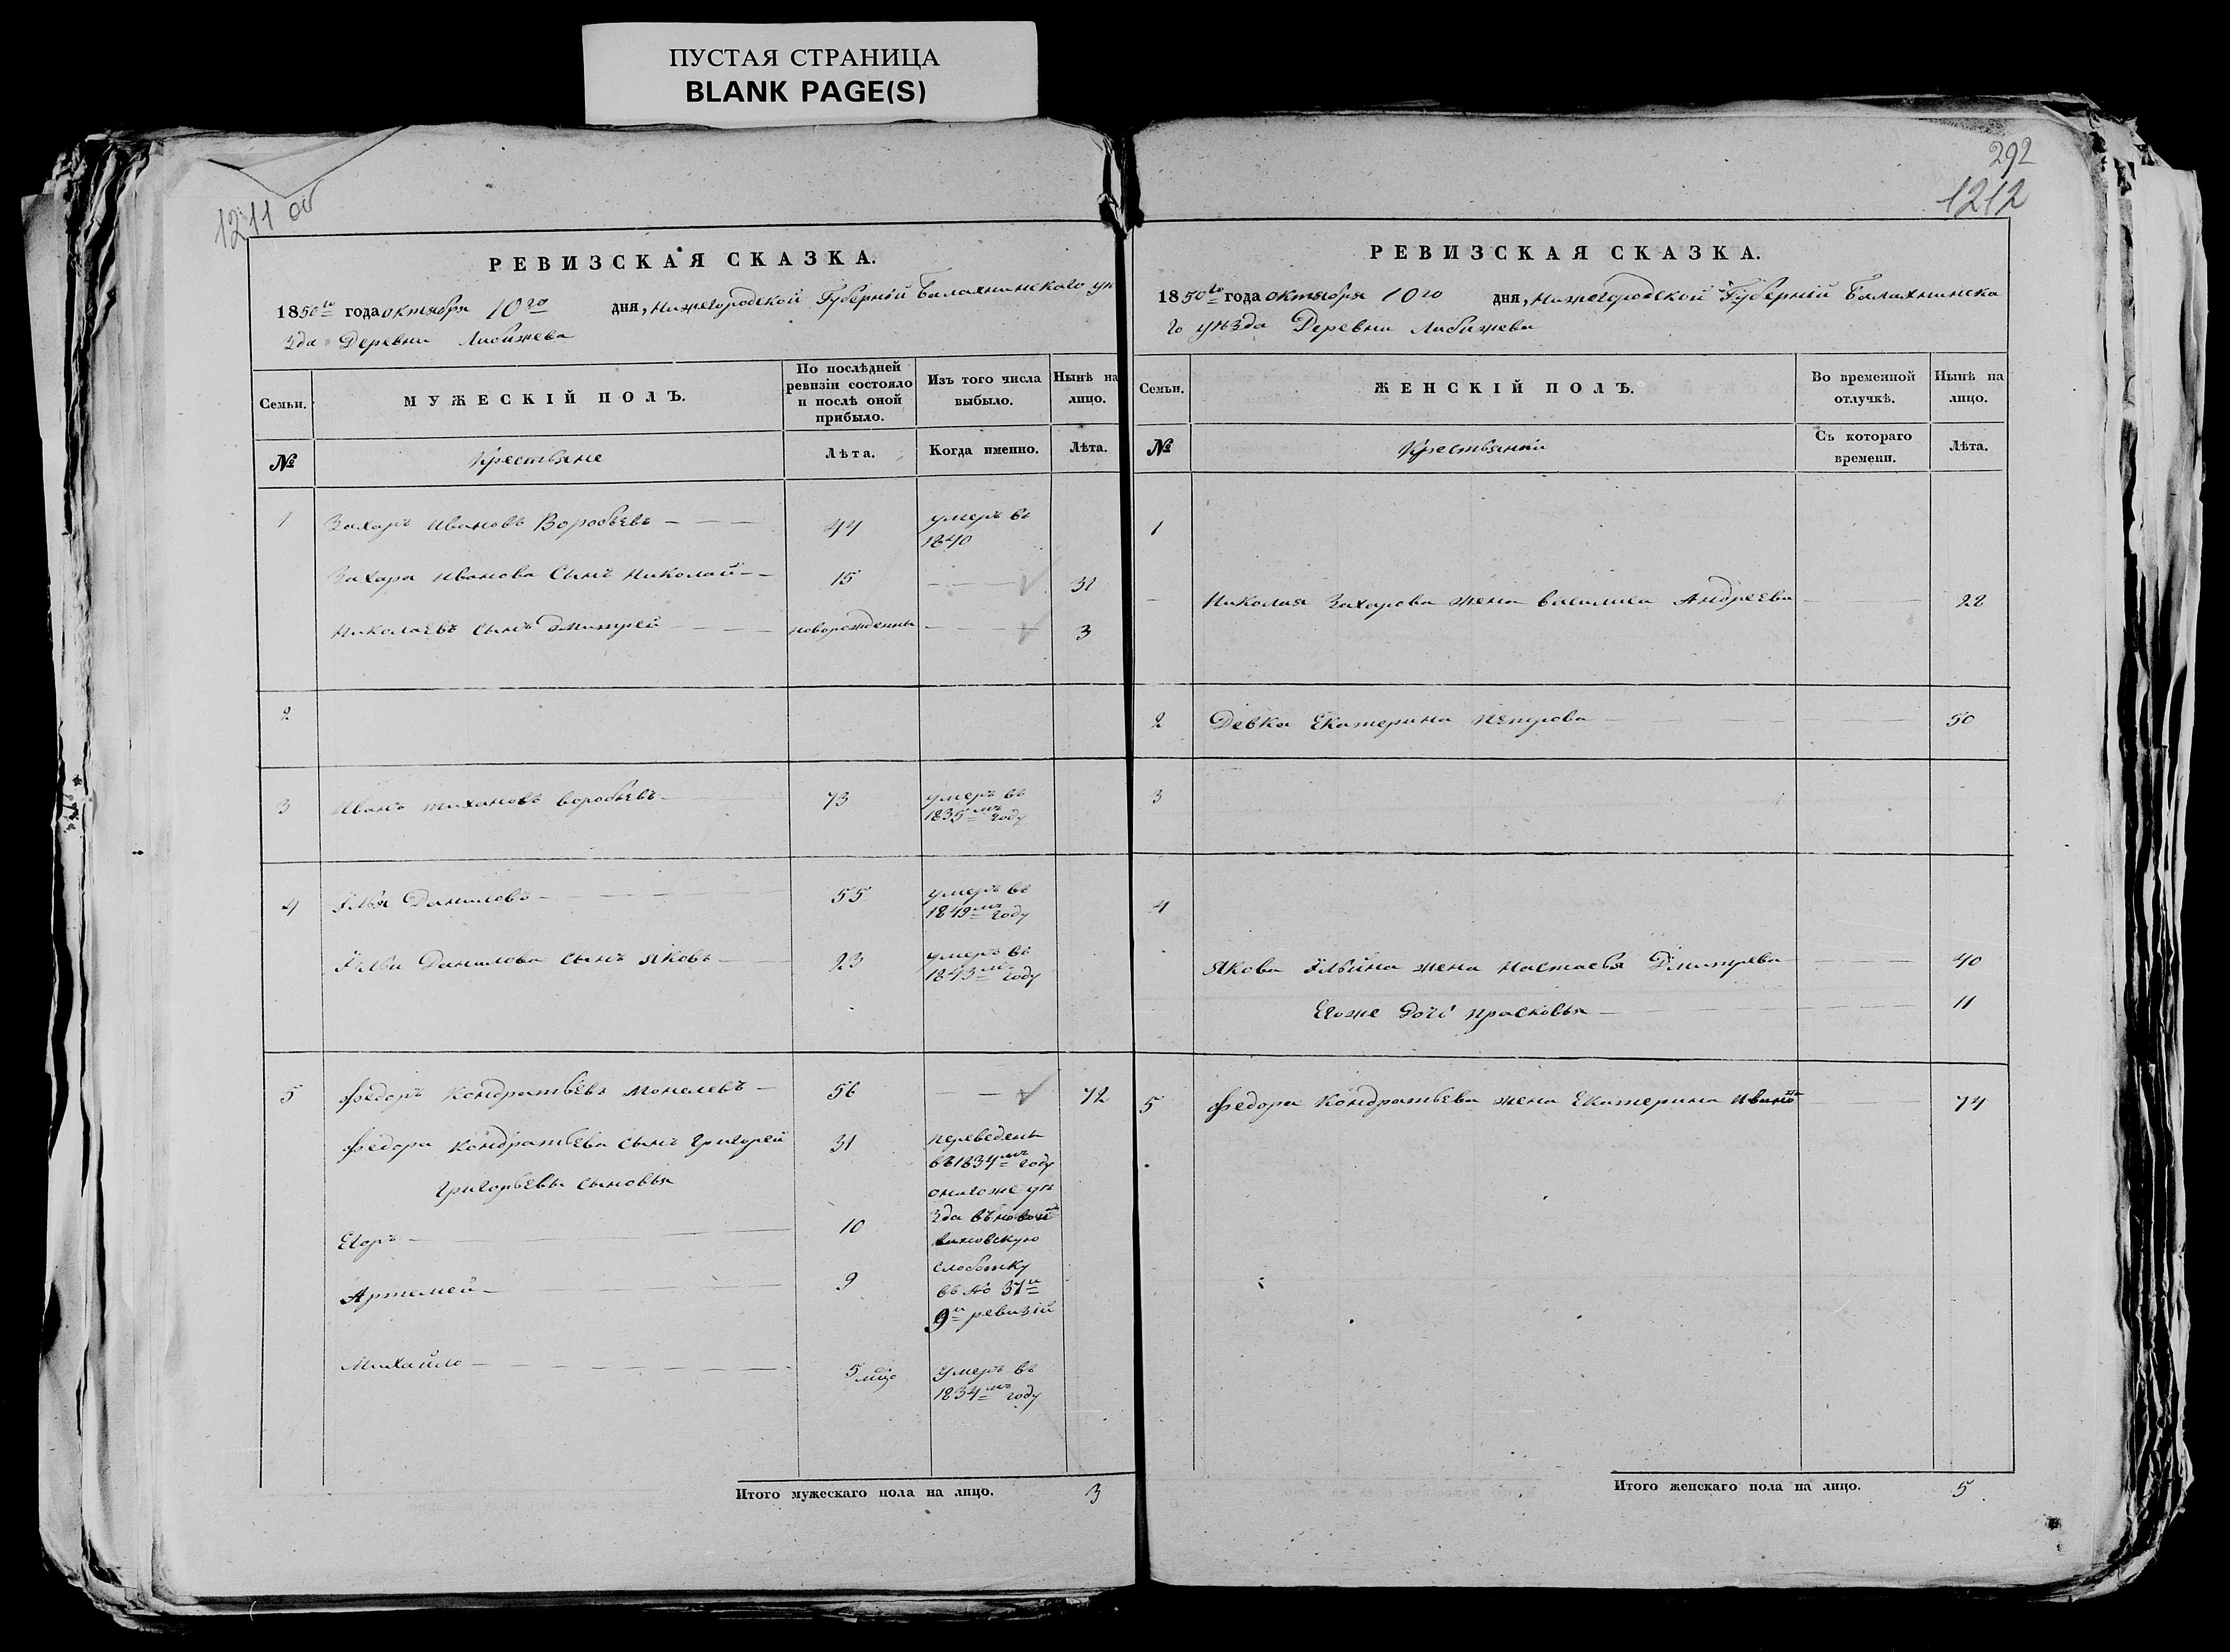 ПУСТАЯ СТРАНИЦА
BLANK PAGE(S)
1211 об
РЕВИЗСКАЯ СКАЗКА.
1850го года октября 10го дня, Нижегородской Губерніи Балахнинского уѣ
зда Деревни Либежева
Семьи.
МУЖЕСКІЙ ПОЛЪ.
По послѣдней
ревизіи состояло
и послѣ оной
прибыло.
Изъ того числа
выбыло.
Нынѣ на
лицо.
№
Крестьяне
Лѣта.
Когда именно.
Лѣта.
1 Захаръ Ивановъ Воробьевъ 44 умеръ въ
1840
Захара Иванова сынъ Николай 15 31
Николаевъ сынъ Дмитрей новорожденны 3
2
3 Иванъ Тихановъ Воробьевъ 73 умеръ въ
1835мъ году
4 Илья Даниловъ 55 умеръ въ
1849мъ году
Ильи Данилова сынъ Яковъ 23 умеръ въ
1843мъ году
5 Федоръ Кондратьевъ 56 72
Федора Кондратьева сынъ Григорей 31 переведены
въ 1834мъ году
Григорьевы сыновья
онагоже уѣ
Егоръ 10 зда
слободку
Артемей 9 въ № 37й
9й ревизіи
Михайло 5 мѣс умеръ въ
1834мъ году
Итого мужескаго пола на лицо. 3
292
1212
РЕВИЗСКАЯ СКАЗКА.
1850го года октября 10го дня, Нижегородской Губерніи Балахнинска
го уѣзда Деревни Либежева
Семьи.
ЖЕНСКІЙ ПОЛЪ.
Во временной
отлучкѣ.
Нынѣ на
лицо.
№
Крестьянки
Съ котораго
времени.
Лѣта.
1
Николая Захарова жена Василиса Андреева 22
2 Девка Екатерина Петрова 50
3
4
Якова Ильина жена Настасья 40
Егоже дочь Прасковья 11
5 Федора Кондратьева жена Екатерина 74
Итого женскаго пола на лицо. 5